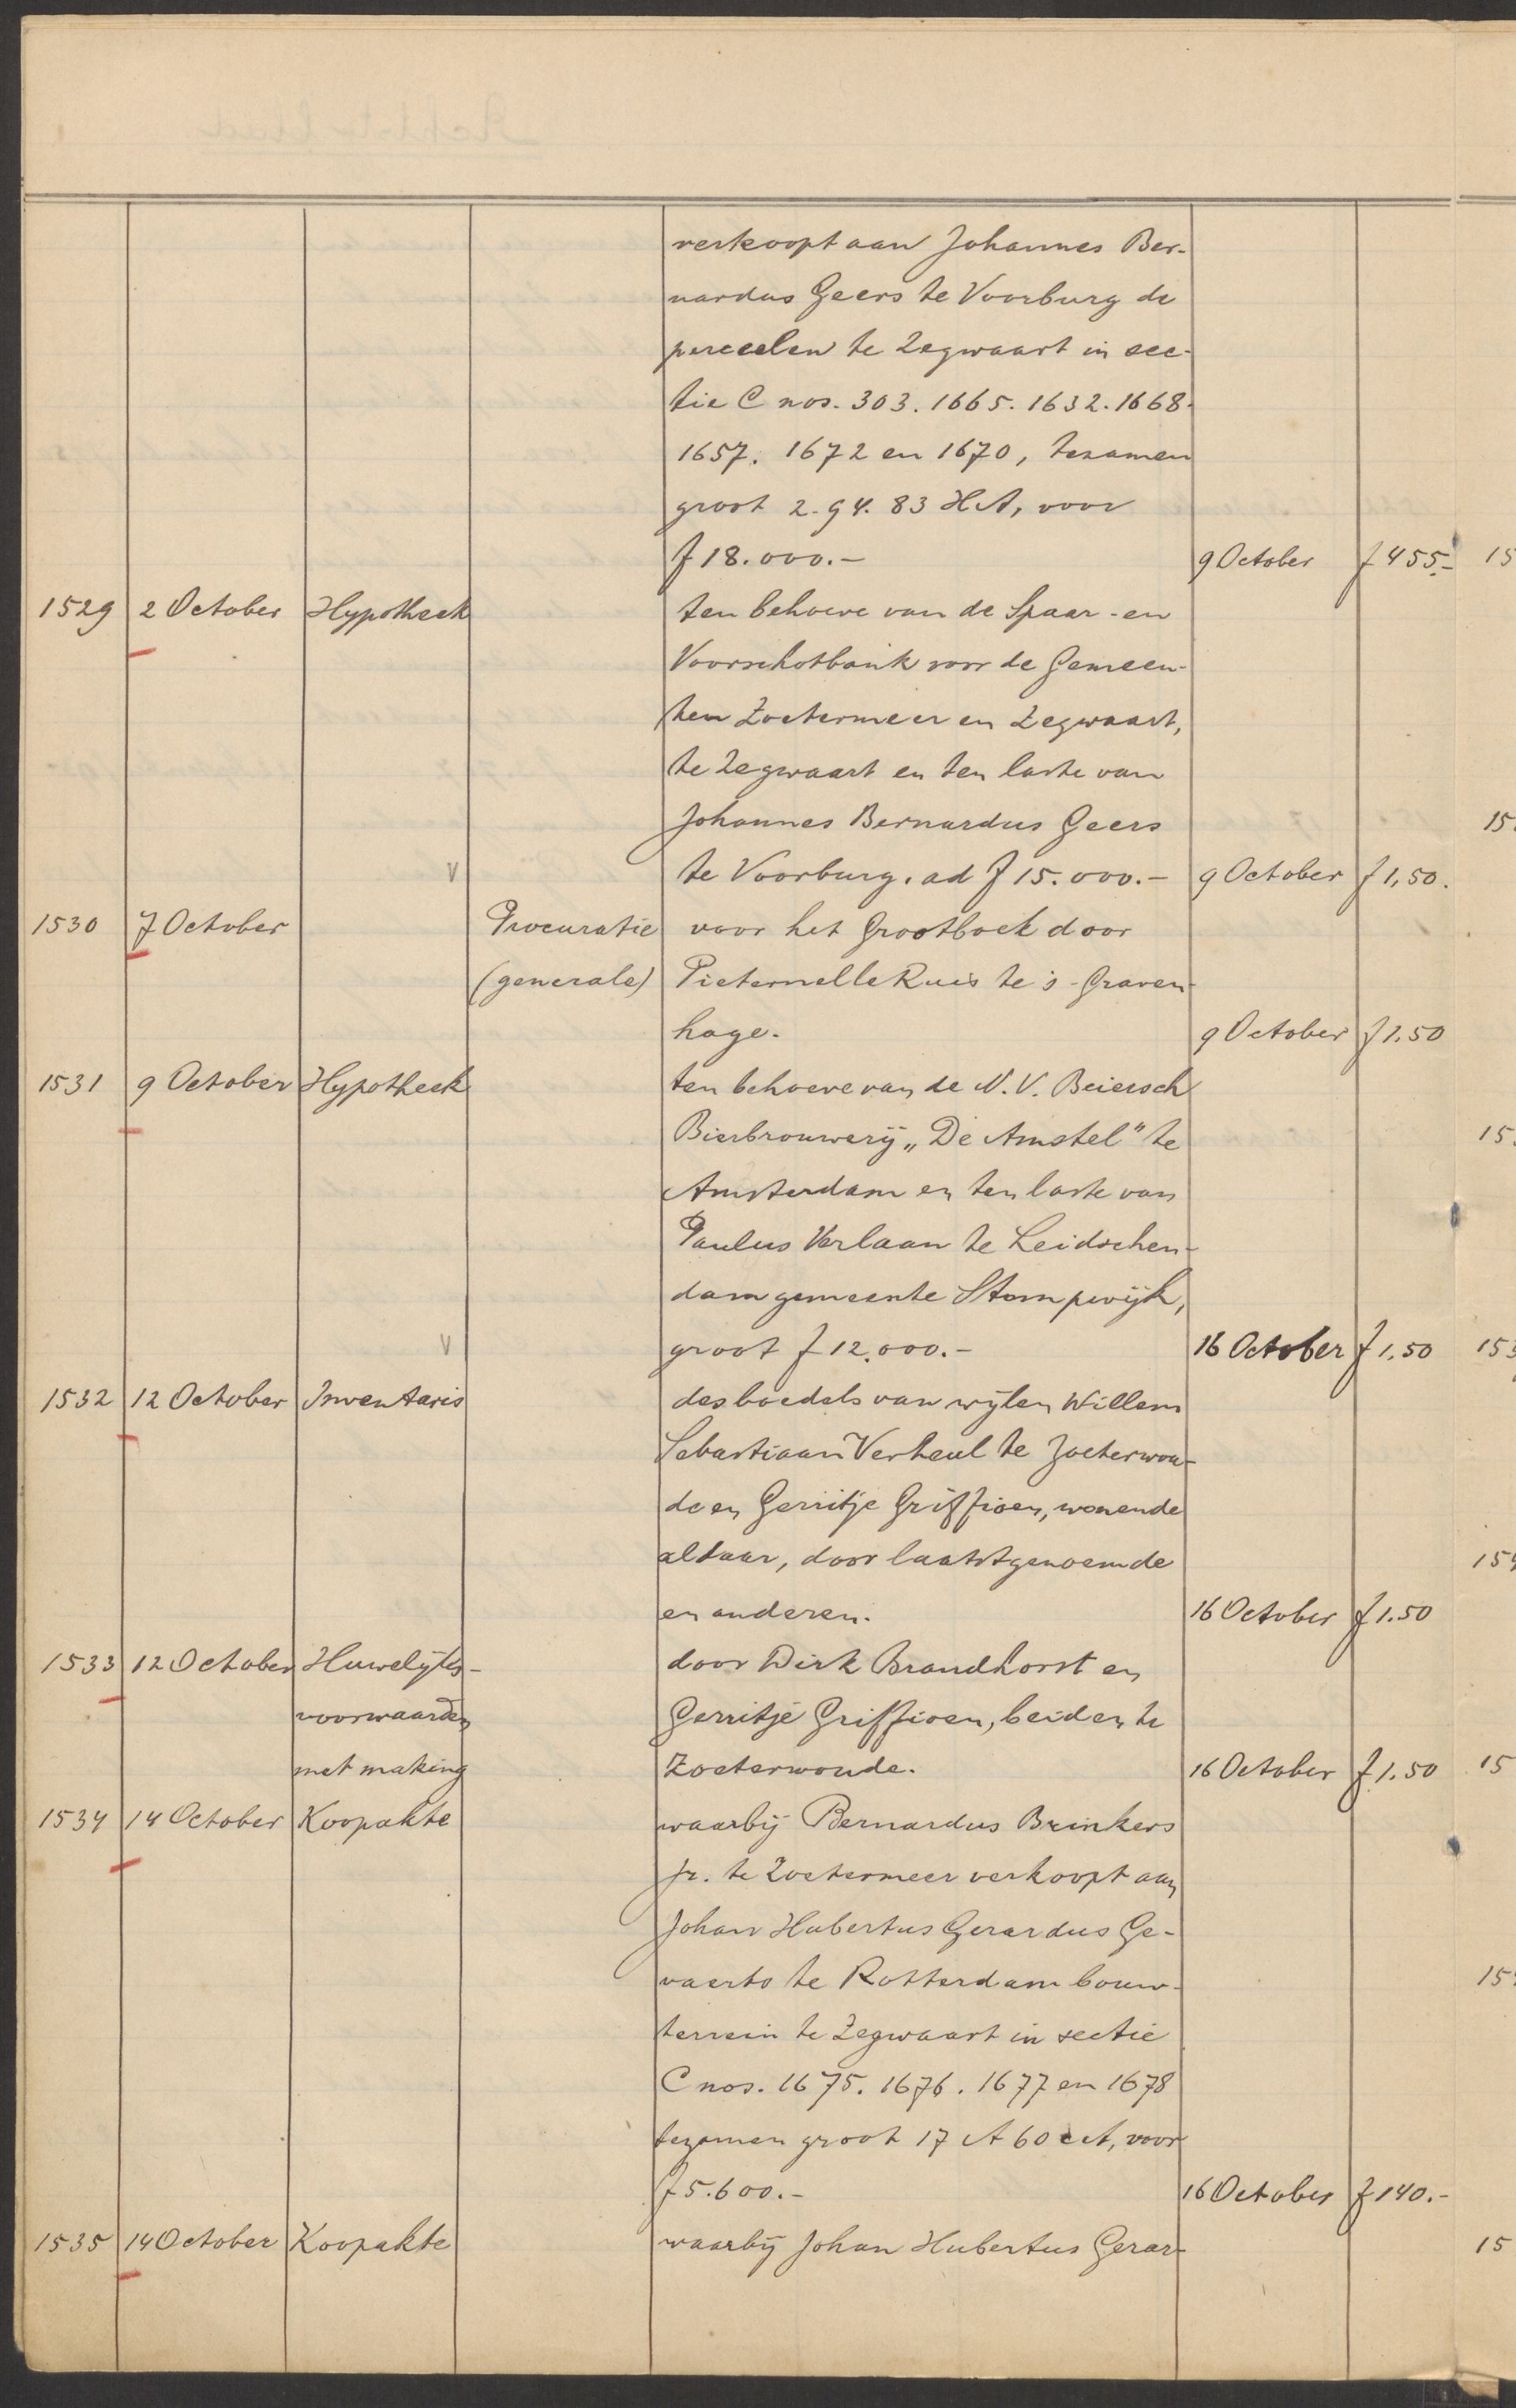 verkoopt aan Johannes Ber-
nardus Geers te Voorburg de
perceelen te Zegwaart in sec-
tie C nos. 303. 1665. 1632. 1668.
1657. 1672 en 1670, tezamen
groot 2.94.83 HA, voor
f 18.000.- 9 October f 455.-
1529 2 October Hypotheek ten behoeve van de Spaar- en
Voorschotbank voor de Gemeen-
ten Zoetermeer en Zegwaart,
te Zegwaart en ten laste van
Johannes Bernardus Geers
V te Voorburg, ad f 15.000.- 9 October f 1,50.
1530 7 October Procuratie voor het Grootboek door
(generale) Pieternelle Ruis te 's-Graven-
hage. 9 October f 1.50
1531 9 October Hypotheek ten behoeve van de N.V. Beiersch
Bierbrouwerij „De Amstel" te
Amsterdam en ten laste van
Paulus Verlaan te Leidschen-
dam gemeente Stompwijk,
V groot f 12.000.- 16 October f 1,50
1532 12 October Inventaris des boedels van wijlen Willem
Sebastiaan Verheul te Zoeterwou-
de en Gerritje Griffioen, wonende
aldaar, door laatstgenoemde
en anderen. 16 October f 1.50
1533 12 October Huwelijks- door Dirk Brandhorst en
voorwaarden Gerritje Griffioen, beiden te
met making Zoeterwoude. 16 October f 1.50
1534 14 October Koopakte waarbij Bernardus Brinkers
Jr. te Zoetermeer verkoopt aan
Johan Hubertus Gerardus Ge-
vaerts te Rotterdam bouw-
terrein te Zegwaart in sectie
C nos. 1675. 1676. 1677 en 1678
tezamen groot 17 A 60 cA, voor
f 5.600.- 16 October f 140.-
1535 14 October Koopakte waarbij Johan Hubertus Gerar-